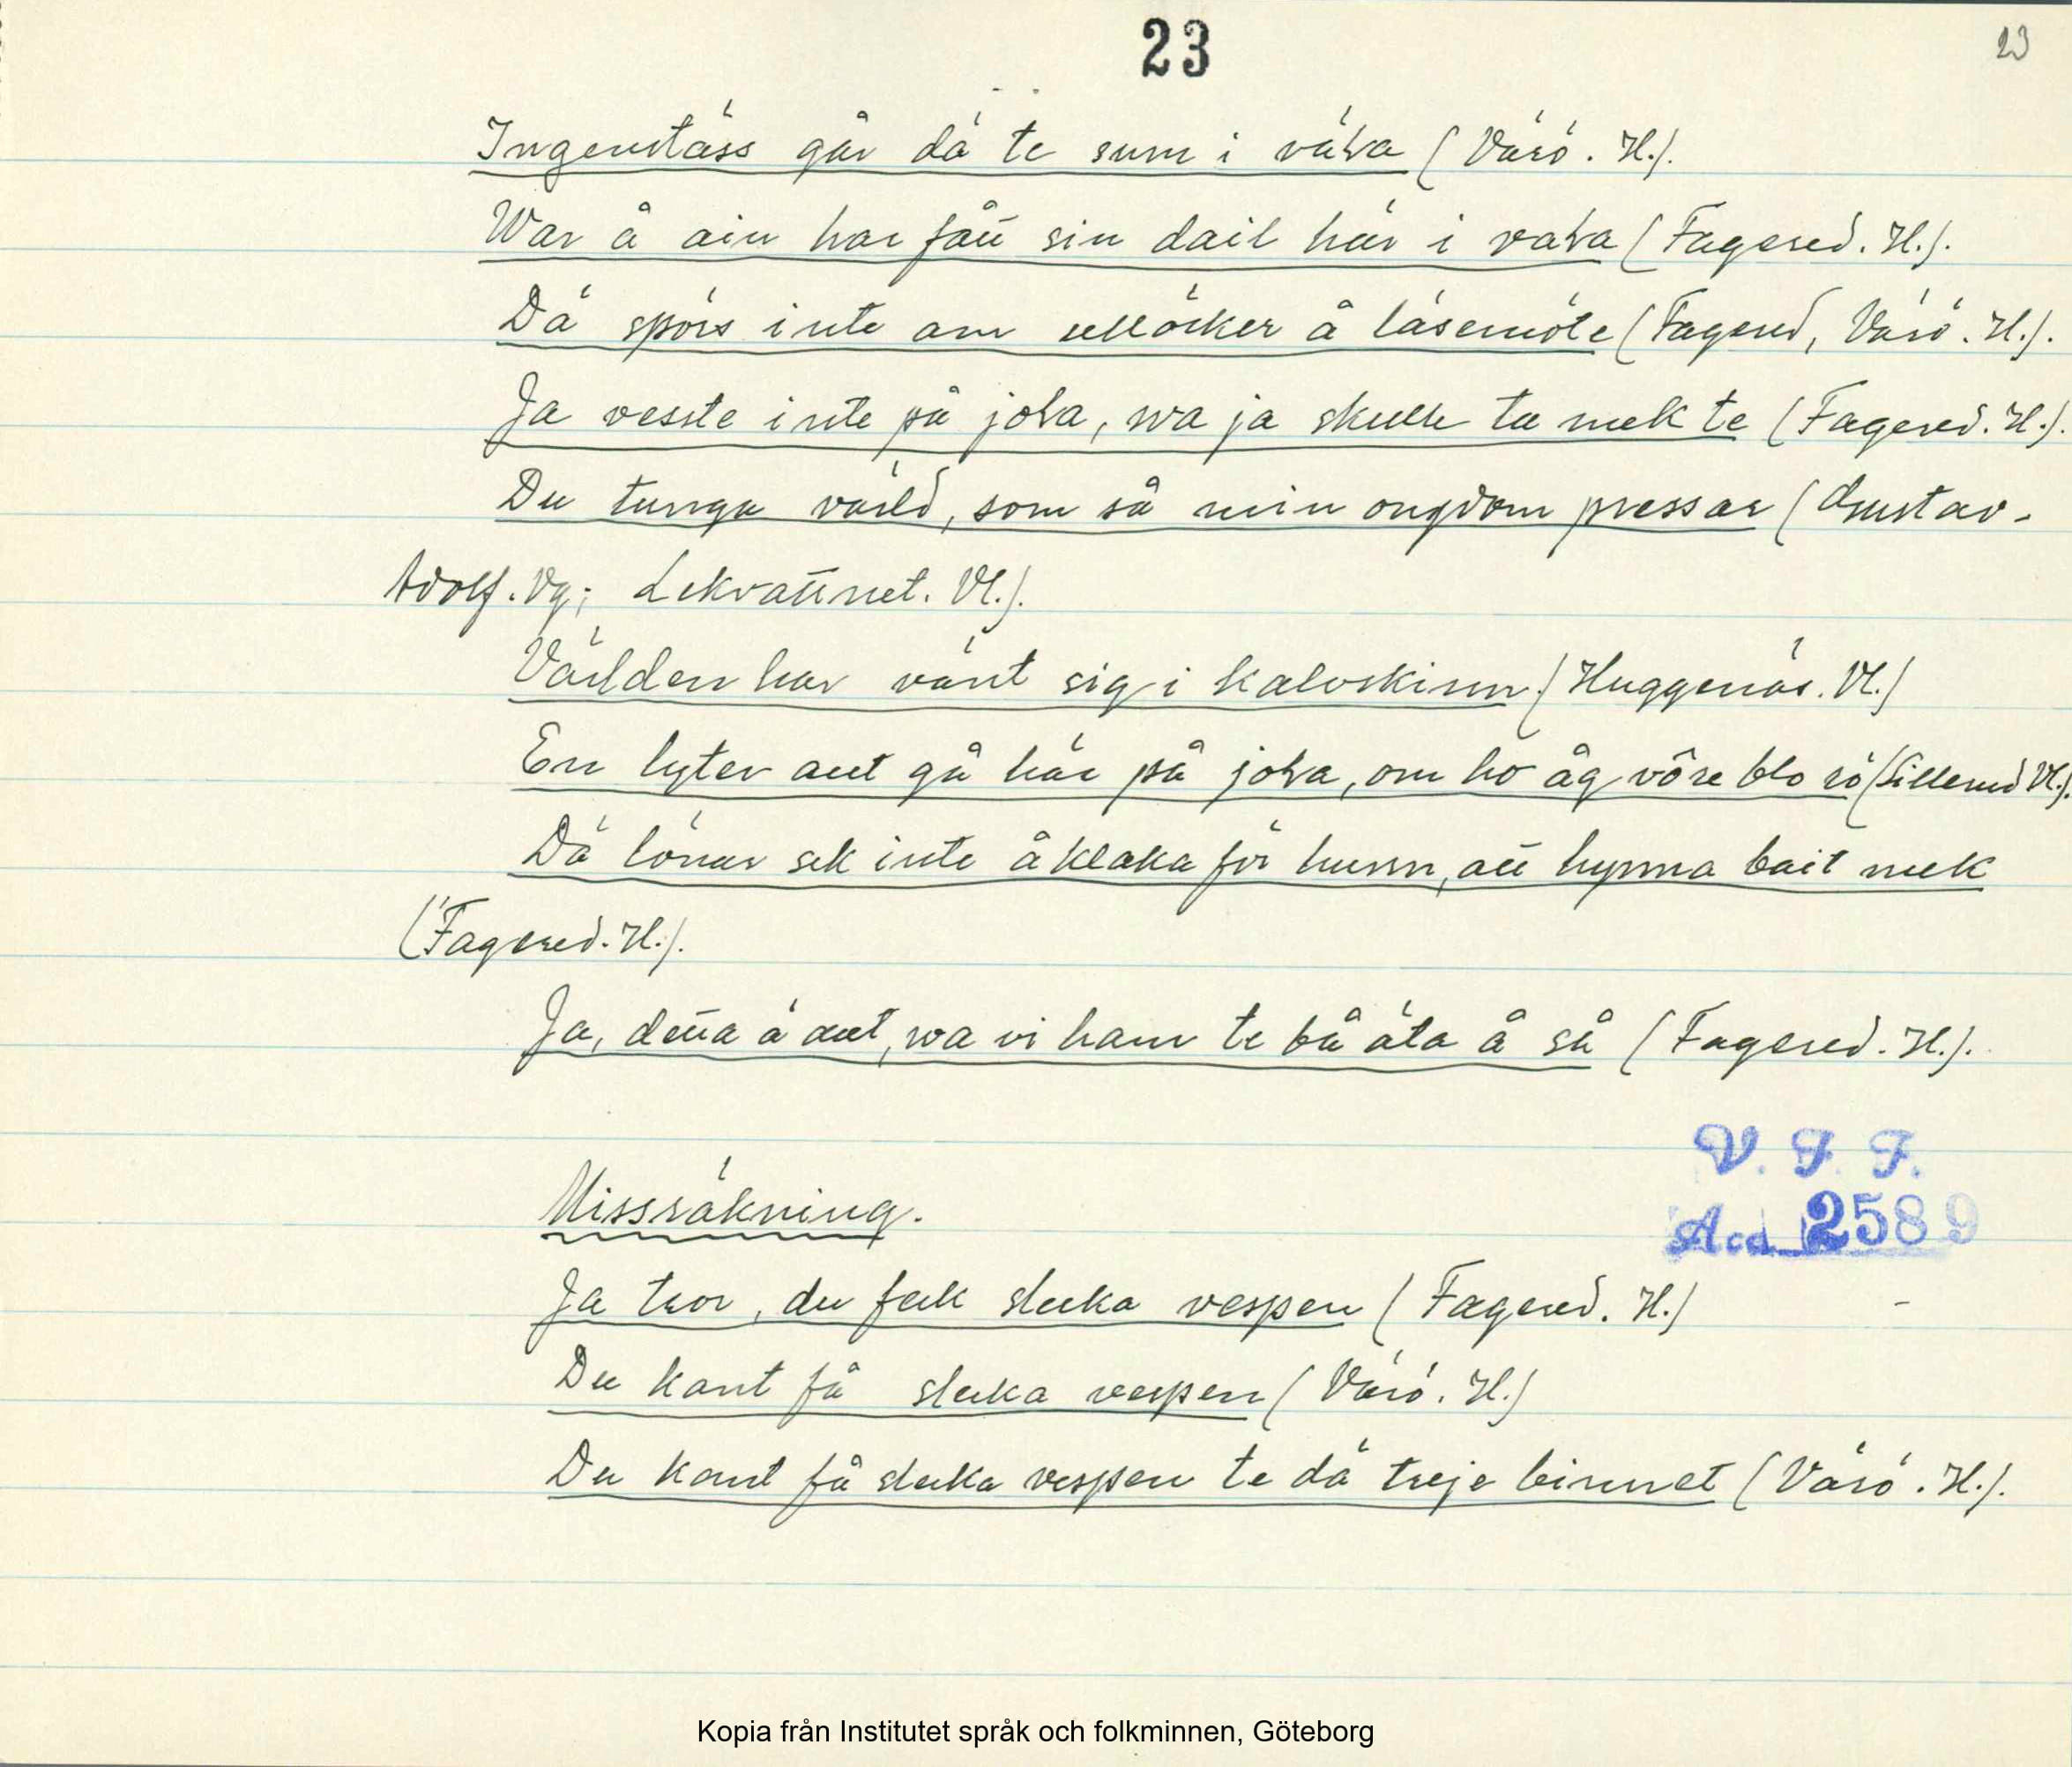 23
23
Ingenstäss går dä te sum i väLva (Värö. H.).
War å ain har fåu sin dail här i vaLva (Fagered. H.).
Dä spörs inte om ullöcker å läsemöte (Fagered, Värö. H.).
Ja vesste inte på joLa, wa ja skulle ta mek te (Fagered. H.).
Du tunga värld, som så min ongdom pressar (Gustav-
Adolf. Vg; Lekvattnet. Vl.).
Världen har vänt sig i kalvskinn (Huggenäs. Vl.)
En lyter aut gå här på joLa, om ho åg vôre blo rö (Sillerud Vl.).
Dä lönar sek inte å klaka för hunn, att hynna bait mek
(Fagered. H.).
Ja, detta ä aut, wa vi ham te bå äta å så (Fagered. H.).
V. F. F.
Missräkning.
Acd. 2589
Ja tror, du feck slecka vespen (Fagered. H.)
Du kant få slecka vespen (Värö. H.)
Du kant få slecka vespen te dä treje binnet (Värö. H.).
Kopia från Institutet språk och folkminnen, Göteborg